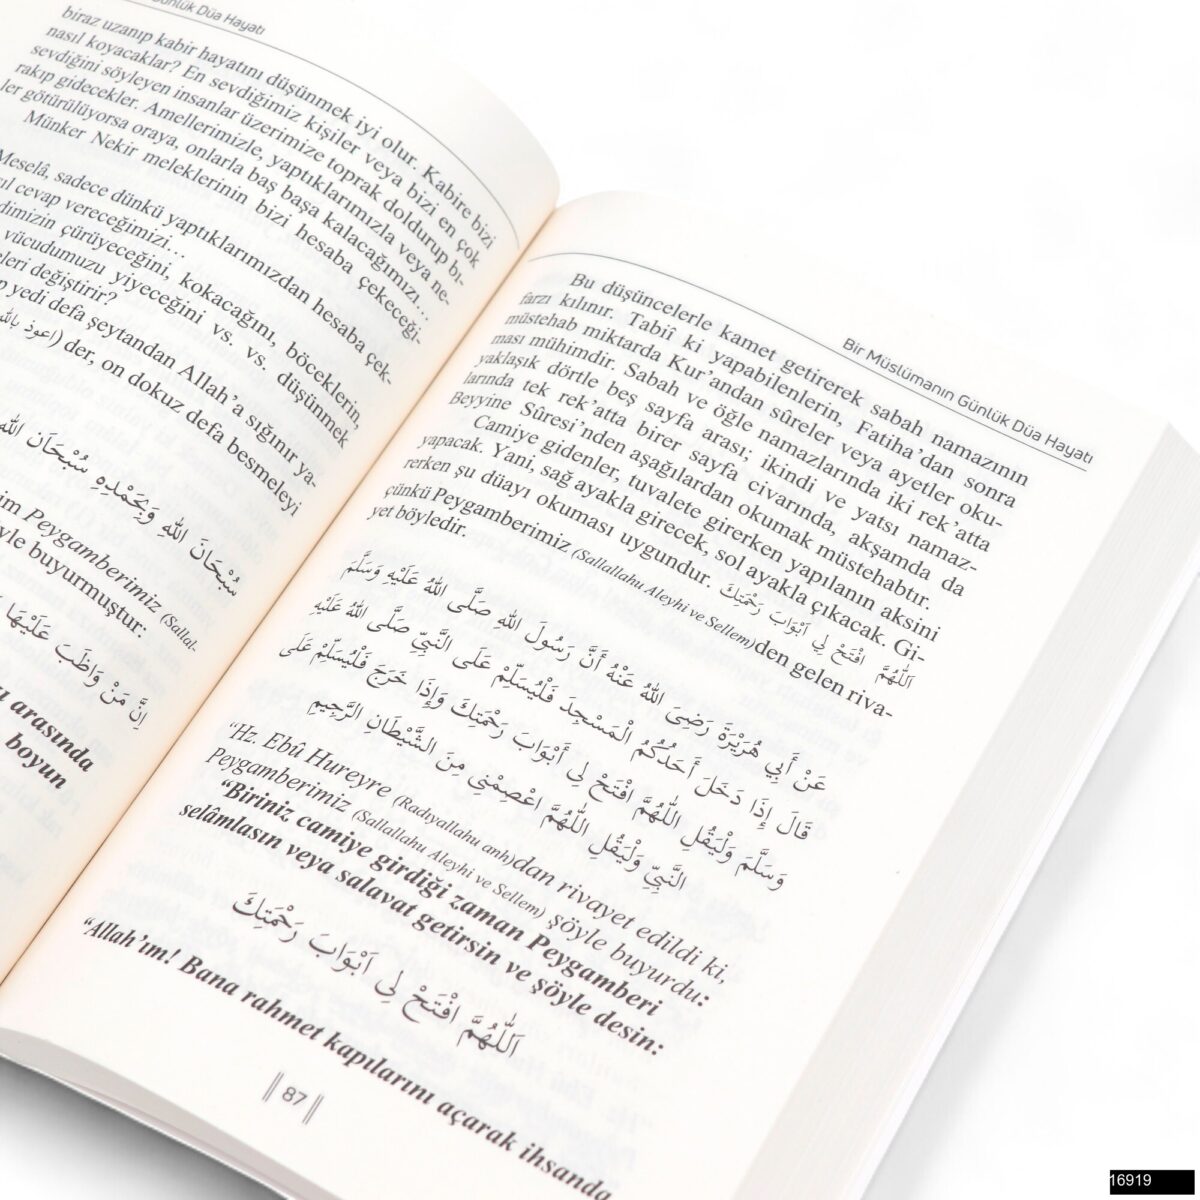 Günlük Düa Hayatı
biraz uzanıp kabir hayatını düşünmek iyi olur. Kabire bizi
nasıl koyacaklar? En sevdiğimiz kişiler veya bizi en çok
sevdiğini söyleyen insanlar üzerimize toprak doldurup bı-
rakıp gidecekler. Amellerimizle, yaptıklarımızla veya ne-
ler götürülüyorsa oraya, onlarla baş başa kalacağımızı...
Münker Nekir meleklerinin bizi hesaba çekeceği-
Meselâ, sadece dünkü yaptıklarımızdan hesaba çek-
cevap vereceğimizi...
çürüyeceğini, kokacağını, böceklerin,
vücudumuzu yiyeceğini vs. vs. düşünmek
değiştirir?
yedi defa şeytandan Allah'a sığınır ya-
(اعوذ بالله der, on dokuz defa besmeleyi
سُبْحَانَ اللهِ وَبِحَمْدِهِ سُبْحَانَ اللهِ
Peygamberimiz (Sallal-
buyurmuştur:
اِنَّ مَنْ وَاظَبَ عَلَيْهَا
arasında
boyun
Bir Müslümanın Günlük Düa Hayatı
Bu düşüncelerle kamet getirerek sabah namazının
farzı kılınır. Tabiî ki yapabilenlerin, Fatiha'dan sonra
müstehab miktarda Kur'andan sûreler veya ayetler oku-
ması mühimdir. Sabah ve öğle namazlarında iki rek'atta
yaklaşık dörtle beş sayfa arası; ikindi ve yatsı namaz-
larında tek rek'atta birer sayfa civarında, akşamda da
Beyyine Sûresi'nden aşağılardan okumak müstehabtır.
Camiye gidenler, tuvalete girerken yapılanın aksini
yapacak. Yani, sağ ayakla girecek, sol ayakla çıkacak. Gi-
rerken şu duayı okuması uygundur. اَللّٰهُمَّ افْتَحْ لِي اَبْوَابَ رَحْمَتِكَ
çünkü Peygamberimiz (Sallallahu Aleyhi ve Sellem)den gelen riva-
yet böyledir.
عَنْ أَبِي هُرَيْرَةَ رَضِيَ اللهُ عَنْهُ أَنَّ رَسُولَ اللهِ صَلَّى اللهُ عَلَيْهِ وَسَلَّمَ
قَالَ إِذَا دَخَلَ أَحَدُكُمُ الْمَسْجِدَ فَلْيُسَلِّمْ عَلَى النَّبِيِّ صَلَّى اللهُ عَلَيْهِ
وَسَلَّمَ وَلْيَقُلِ اللّٰهُمَّ افْتَحْ لِي أَبْوَابَ رَحْمَتِكَ وَإِذَا خَرَجَ فَلْيُسَلِّمْ عَلَى
النَّبِيِّ وَلْيَقُلِ اللّٰهُمَّ اعْصِمْنِي مِنَ الشَّيْطَانِ الرَّجِيمِ
"Hz. Ebû Hureyre (Radıyallahu anh)dan rivayet edildi ki,
Peygamberimiz (Sallallahu Aleyhi ve Sellem) şöyle buyurdu:
"Biriniz camiye girdiği zaman Peygamberi
selâmlasın veya salavat getirsin ve şöyle desin:
اَللّٰهُمَّ افْتَحْ لِي اَبْوَابَ رَحْمَتِكَ
"Allah'ım! Bana rahmet kapılarını açarak ihsanda
87
16919